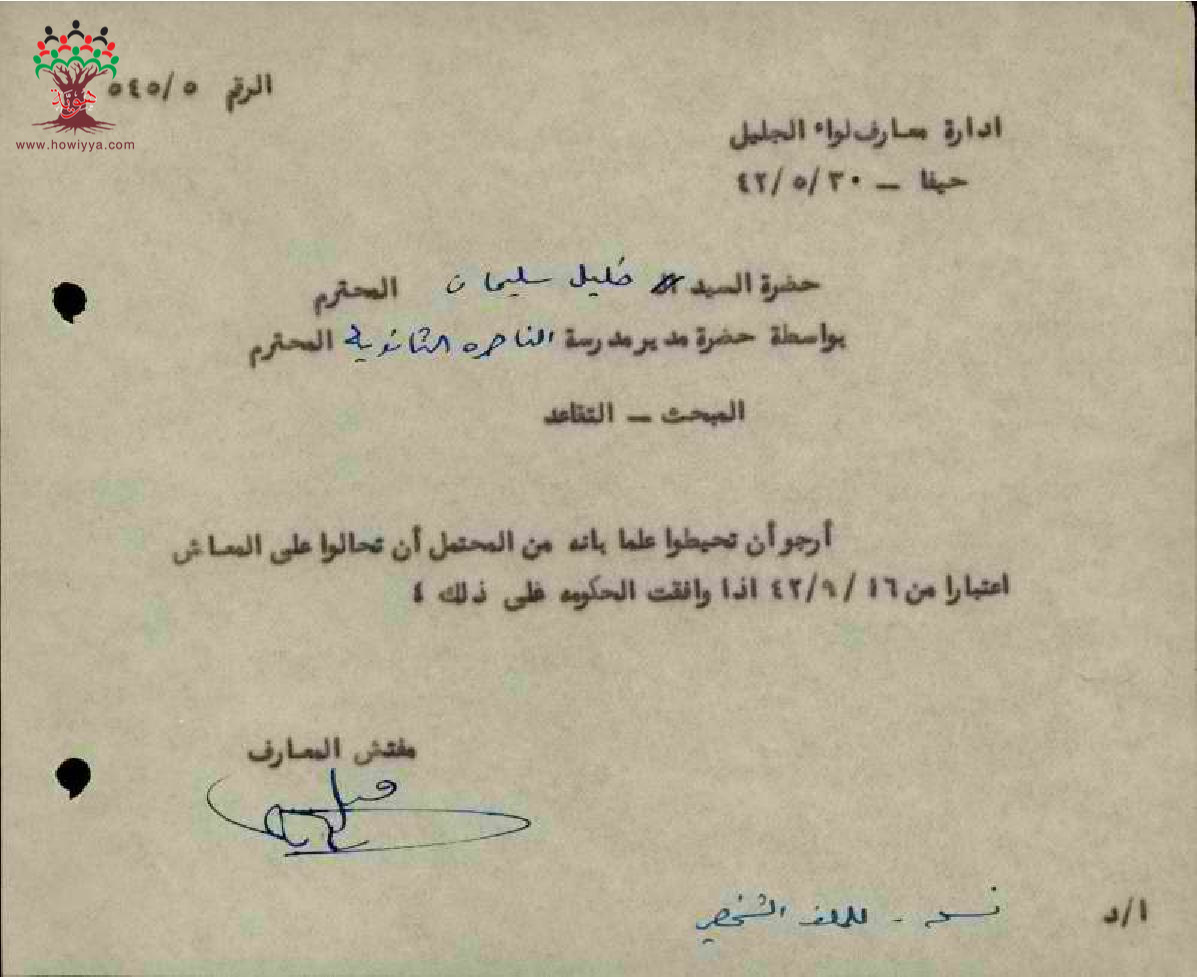 هوية
www.howiyya.com
الرقم ٥٤٥/٥
ادارة معارف لواء الجليل
حيفا — ٤٢/٥/٣٠
حضرة السيد خليل سليمان المحترم
بواسطة حضرة مدير مدرسة الناصره الثانوية المحترم
المبحث — التقاعد
أرجو أن تحيطوا علما بانه من المحتمل أن تحالوا على المعاش
اعتبارا من ٤٢/٩/١٦ اذا وافقت الحكومه على ذلك ٤
مفتش المعارف
نسخه - للملف الشخصي
ا/د